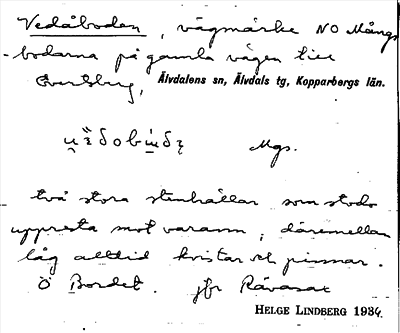 Vedåboden, vägmärke NO Mångs-
bodarna på gamla vägen till
Evertsberg, Älvdalens sn, Älvdals tg, Kopparbergs län.
Mgs.
två stora stenhällar som stodo
uppresta mot varann, däremellan
låg alltid kvistar och pinnar.
Ö Bordet. jfr Råvasar
HELGE LINDBERG 1934.